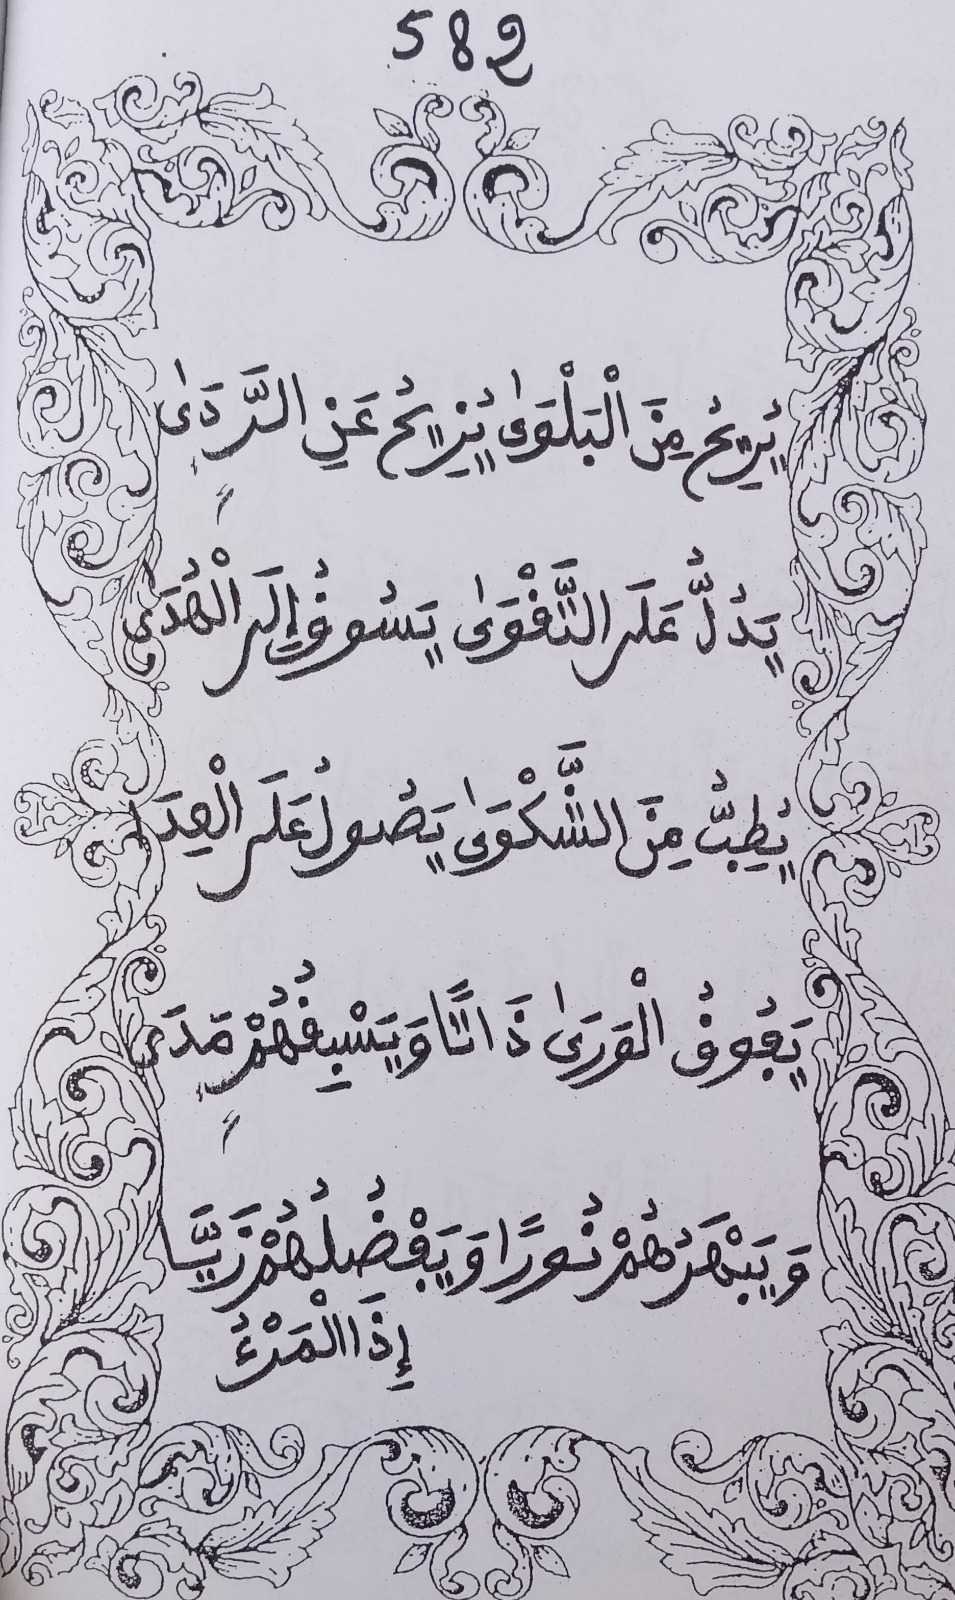 582
يُرِيحُ مِنَ الْبَلْوَىٰ يُزِيحُ عَنِ الرَّدَىٰ
يَدُلُّ عَلَى التَّقْوَىٰ يَسُوقُ إِلَى الْهُدَىٰ
يُطِبُّ مِنَ الشَّكْوَىٰ يَصُولُ عَلَى الْعِدَىٰ
يَفُوقُ الْوَرَىٰ ذَاتًا وَيَسْبِقُهُمْ مَدَىٰ
وَيَبْهَرُهُمْ نُورًا وَيَفْضُلُهُمْ زَيَّا
إِذَا الْمَرْءُ